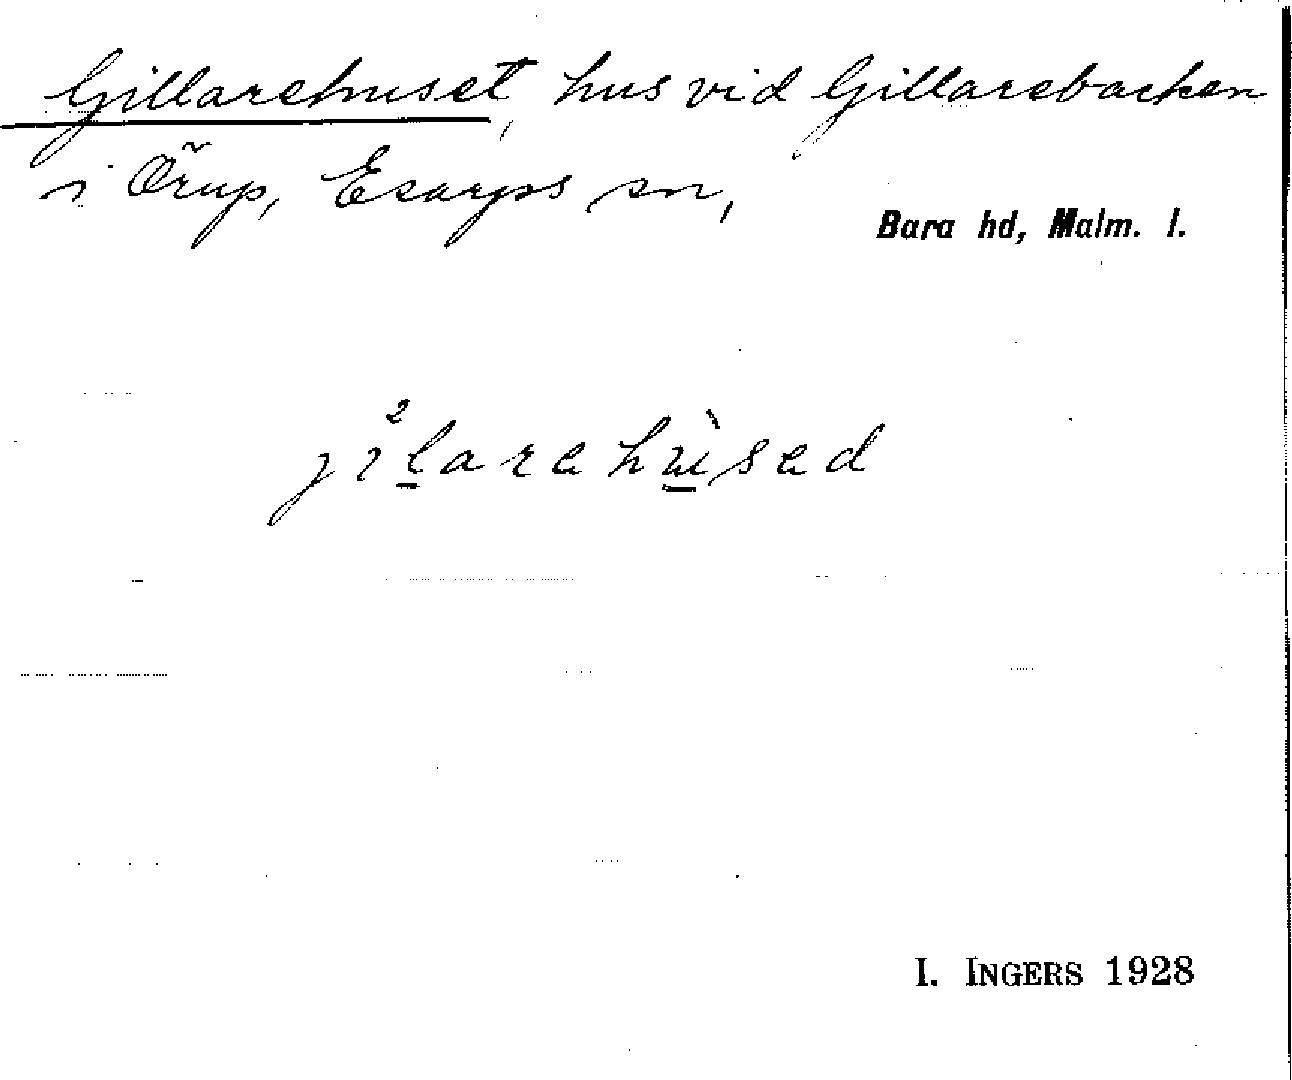 Gillarehuset, hus vid Gillarebacken
i Örup, Esarps sn,
Bara hd, Malm. l.
ji²larehu̇̀sed
I. INGERS 1928